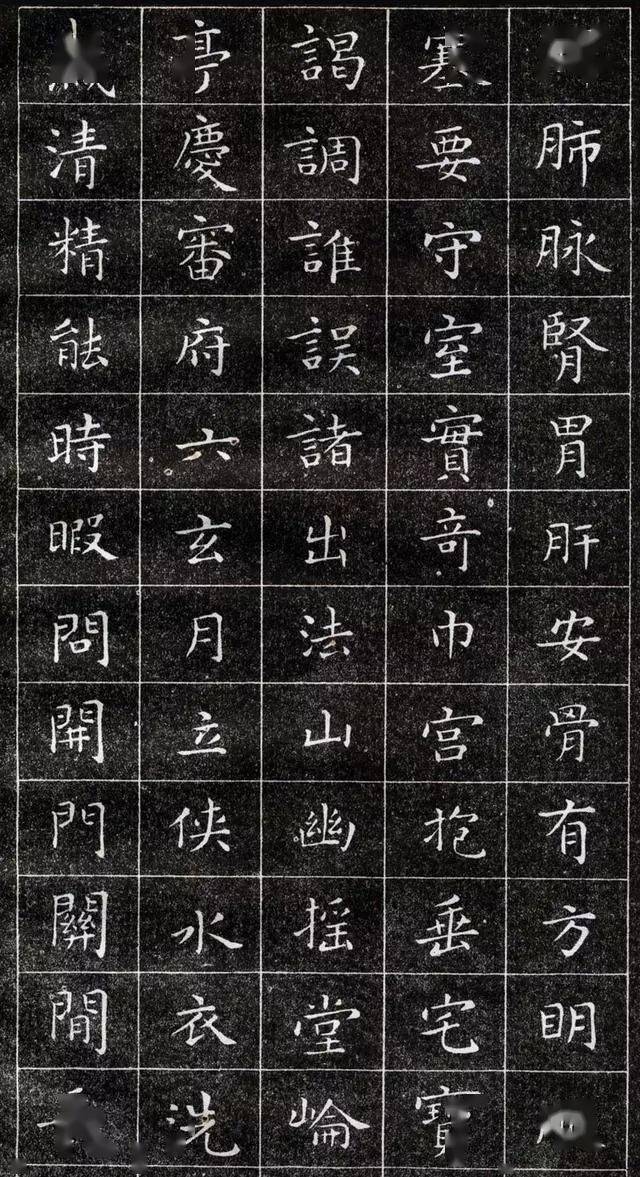 肺脉腎胃肝安骨有方明
塞要守室實奇巾宫抱垂宅寶
謁調誰誤諸出法山幽摇堂崘
亭慶審府六玄月立俠水衣洗
清精能時暇問開門關閒